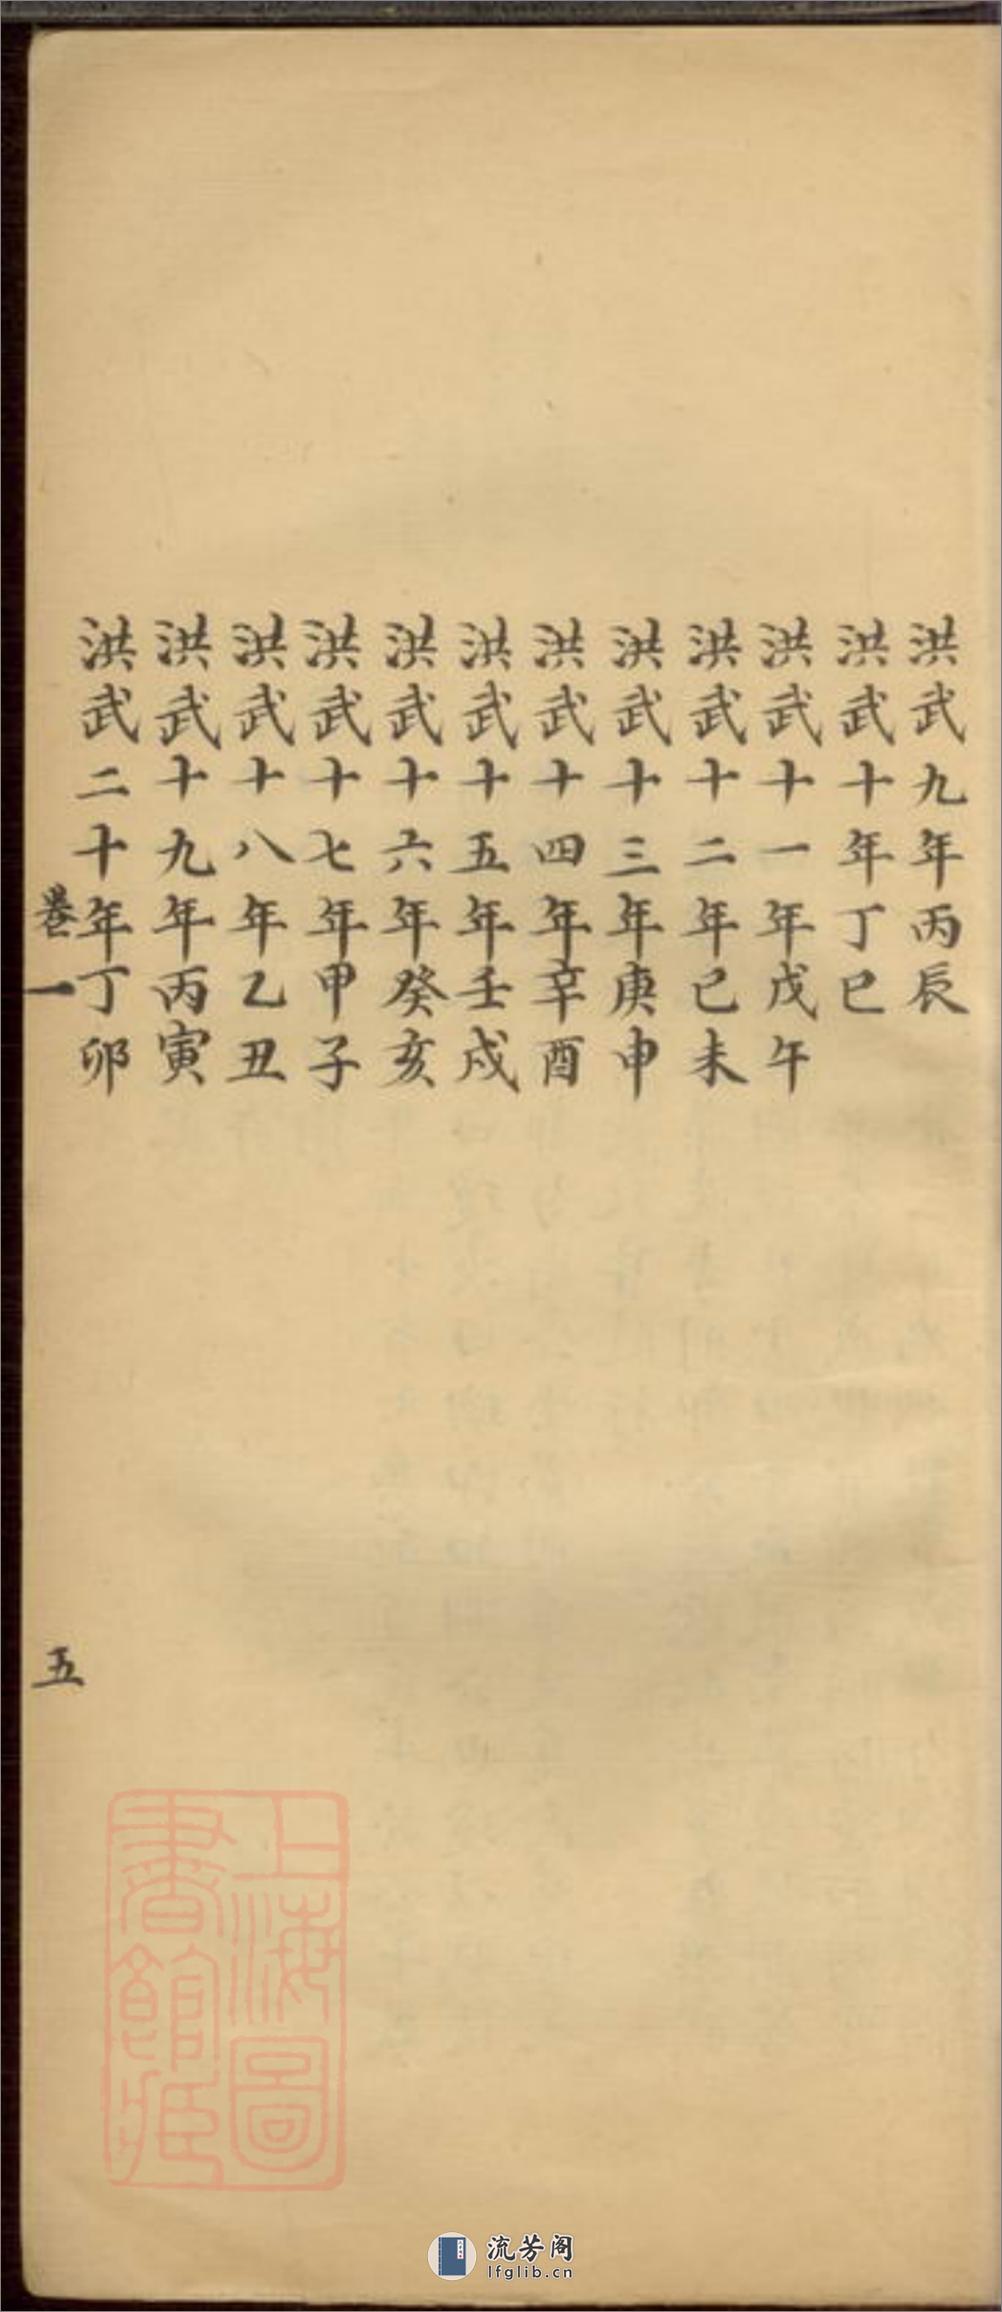 洪武九年丙辰
洪武十年丁巳
洪武十一年戊午
洪武十二年己未
洪武十三年庚申
洪武十四年辛酉
洪武十五年壬戌
洪武十六年癸亥
洪武十七年甲子
洪武十八年乙丑
洪武十九年丙寅
洪武二十年丁卯
卷一
五
上海圖
書館藏
流芳阁
lfglib.cn